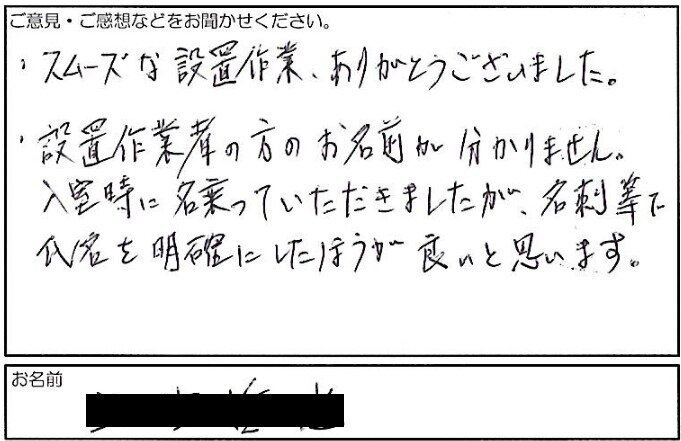 ご意見・ご感想などをお聞かせください。
・スムーズな設置作業、ありがとうございました。
・設置作業者の方のお名前が分かりません。
入室時に名乗っていただきましたが、名刺等で
氏名を明確にしたほうが良いと思います。
お名前